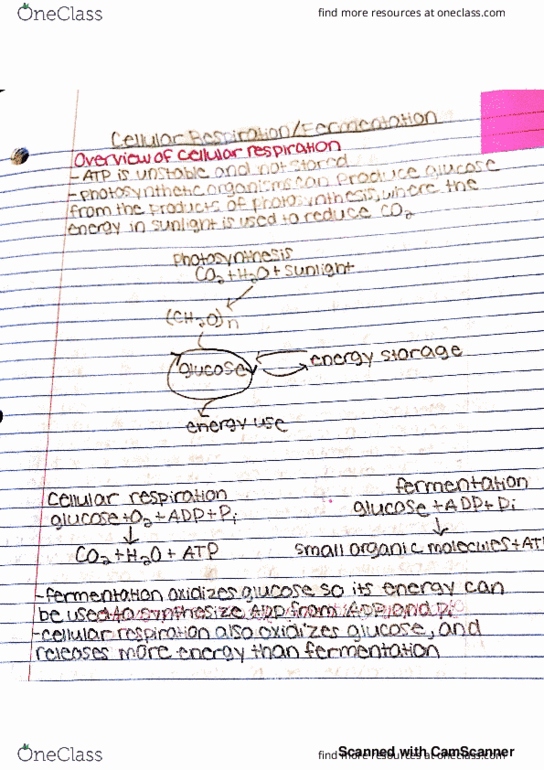 OneClass
find more resources at oneclass.com
Cellular Respiration/Fermentation
Overview of cellular respiration
-ATP is unstable and not stored
-photosynthetic organisms can produce glucose
from the products of photosynthesis, where the
energy in sunlight is used to reduce CO₂
Photosynthesis
CO₂+H₂O+sunlight
(CH₂O)n
glucose
energy storage
energy use
cellular respiration
glucose+O₂+ADP+Pi
CO₂+H₂O+ATP
fermentation
glucose+ADP+Pi
small organic molecules+AT
-fermentation oxidizes glucose so its energy can
be used to synthesize from ADP and pi
-cellular respiration also oxidizes glucose, and
releases more energy than fermentation
OneClass
find more resources at oneclass.com
Scanned with CamScanner